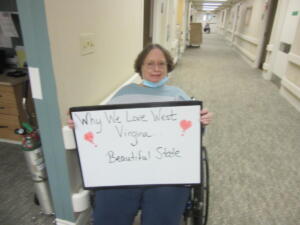 Why We Love West
Virgina
Beautiful State